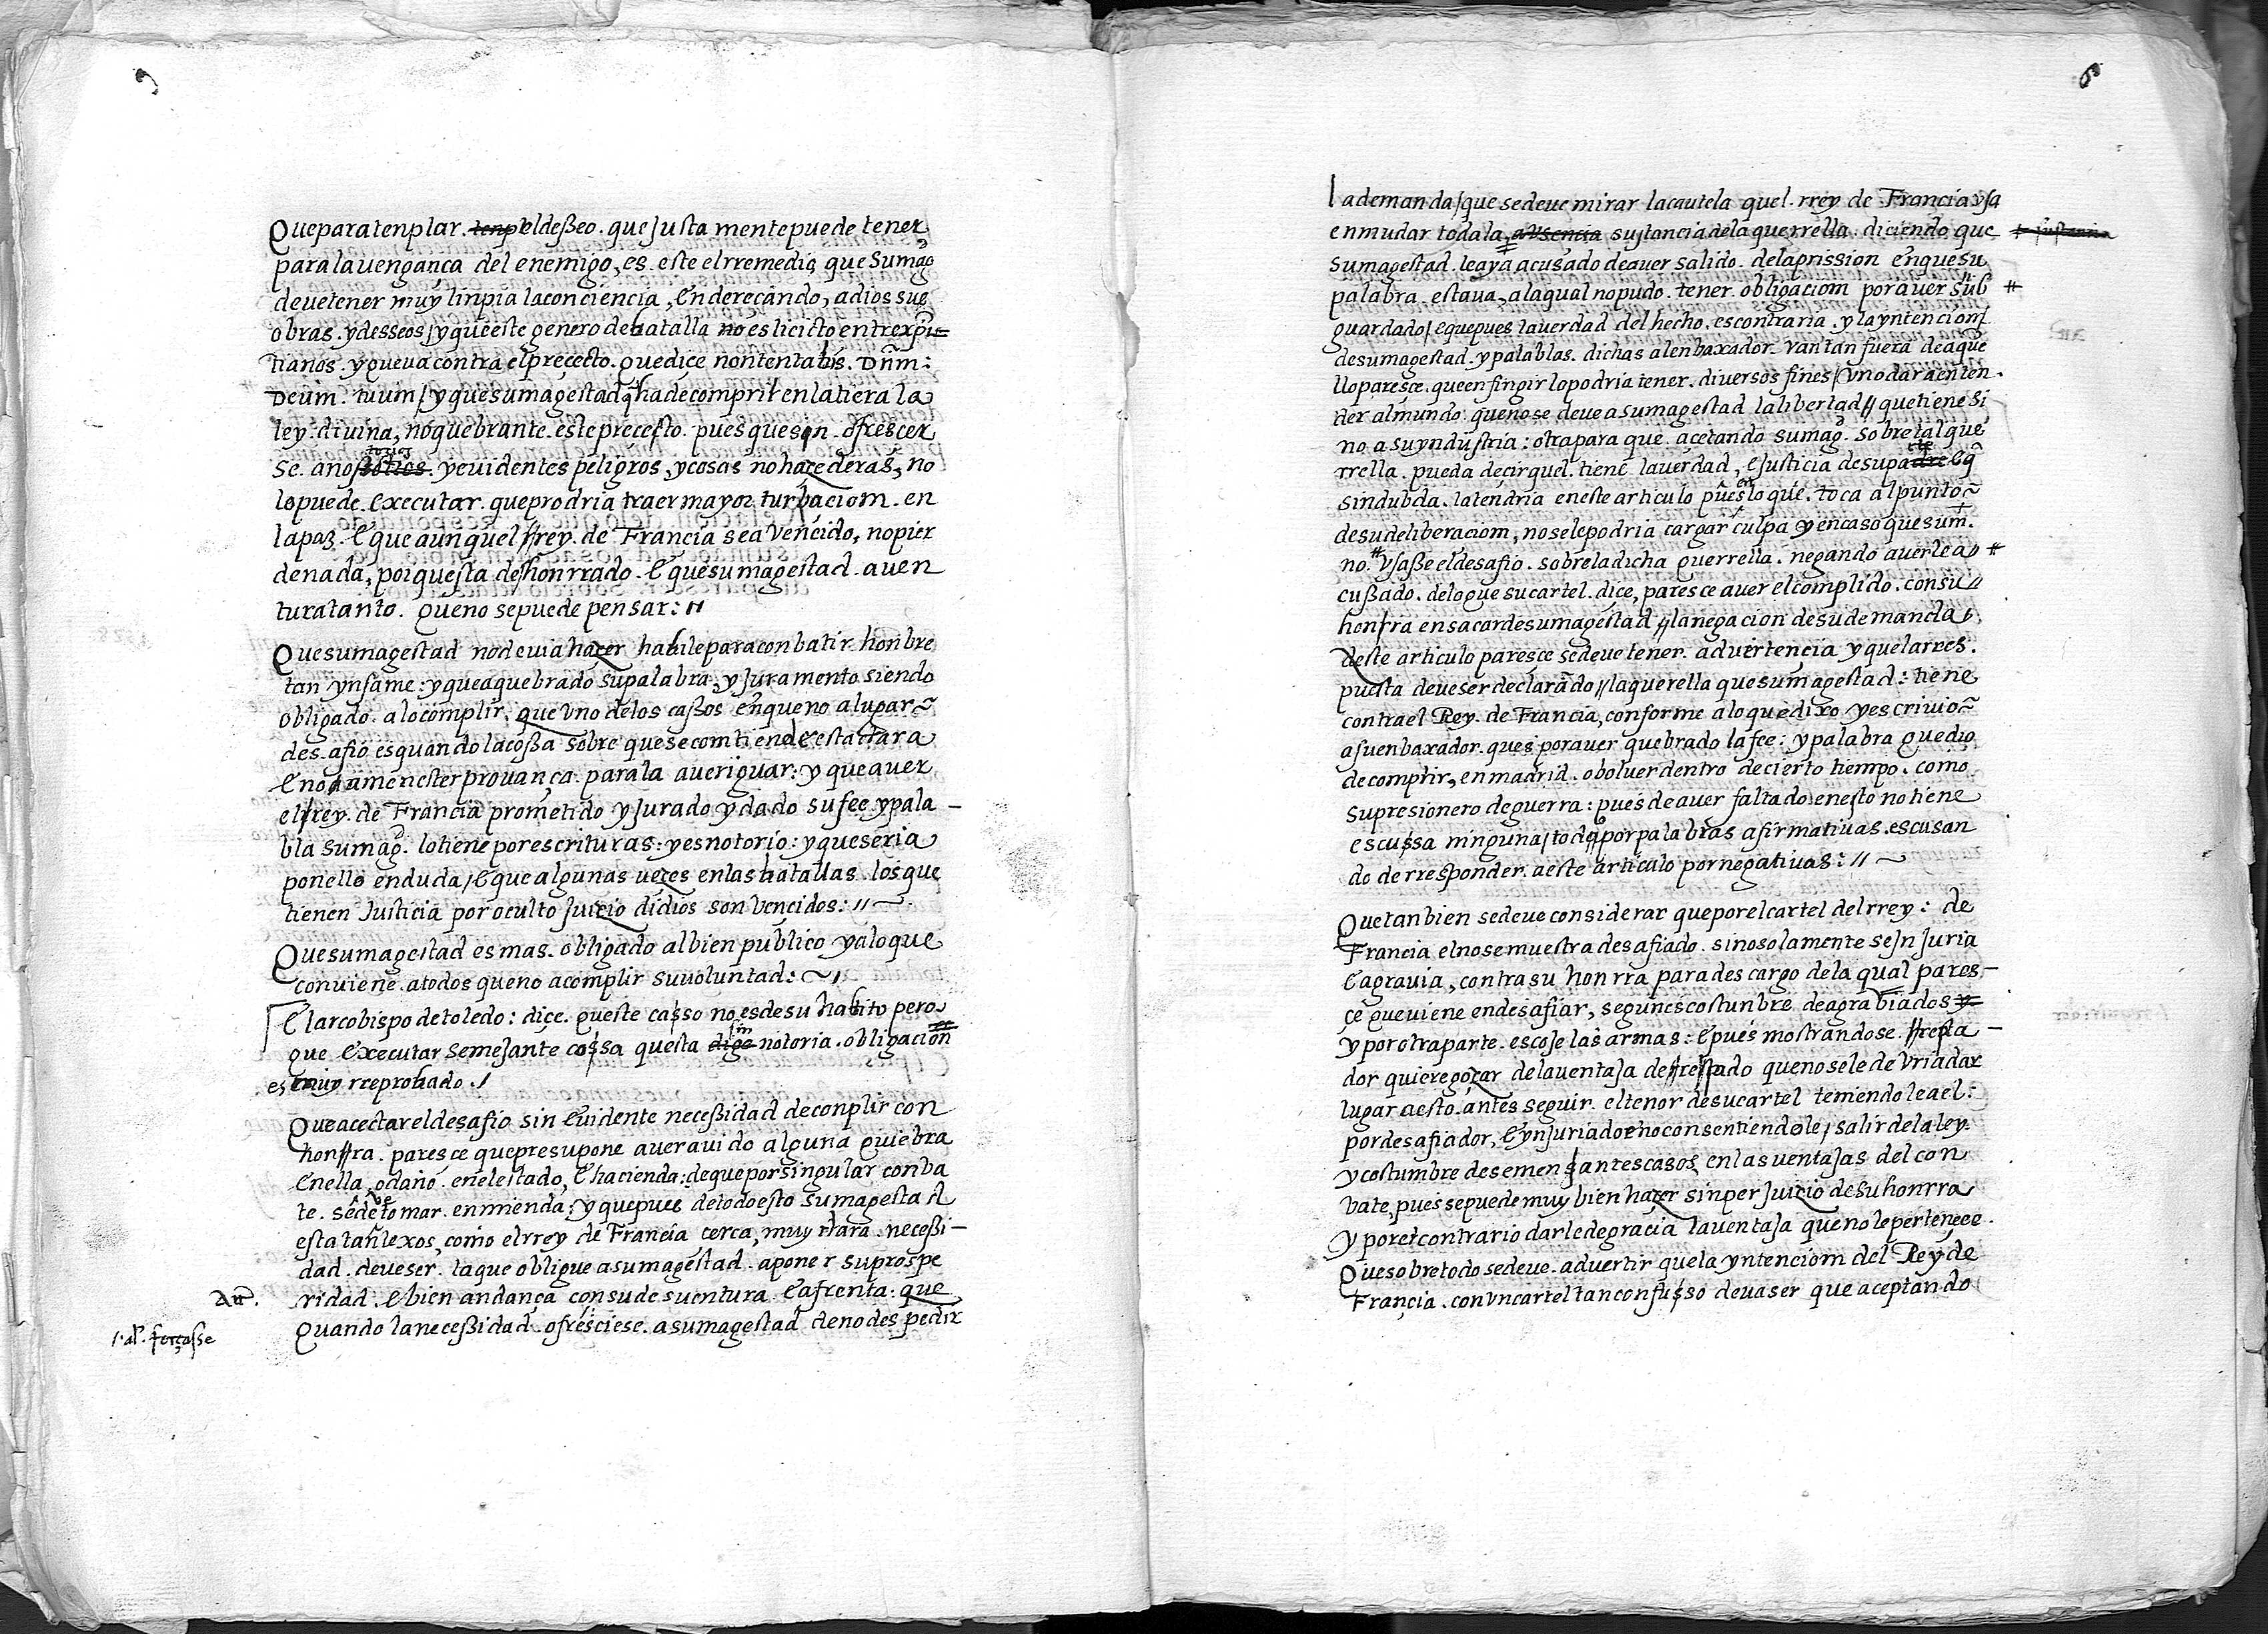 Que para tenplar. tenp el deßeo. que justa mente puede tener
para la uengança del enemigo, es. este el rremedio que su mag.
deue tener muy linpia la conçiençia, enderecando, a dios sus
obras. y desseos / y que este genero de batalla no es licicto entre xpis=
tianos. y que va contra el prececto. que dice non tentabis. Dñm:
Deum. tuum / y que su magestad q̃ ha de comprir en la tiera la
ley. diuina, no quebrante. este precesto. pues que son. ofrescer
se. a nos sotios. torios y euidentes peligros, y cosas no hazederas, no
lo puede. executar. que prodria traer mayor turbaciom. en
la paz. E que aun quel rrey. de Francia sea vencido, no pier
de nada, porque sta des honrrado. E que su magestad. auen
tura tanto. que no se puede pensar: //
Que su magestad no deuia hazer habile para conbatir honbre
tan ynfame: y que a quebrado su palabra, y juramento siendo
obligado. a lo complir. que vno de los caßos en que no a lugar ~
des. afio es quando la coßa sobre que se comtiende esta clara
E no a menester prouança. para la aueriguar: y que auer
el rrey. de Francia prometido y jurado y dado su fee y pala –
bla su mag. lo tiene por escrituras: y es notorio: y que seria
ponello en duda / E que algunas uezes en las batallas. los que
tienen justicia por oculto juizio didios son vencidos: // ~
Que su magestad es mas. obligado al bien publico y a lo que
conuiene. a todos que no a complir su uoluntad: ~ /
El arcobispo de toledo: diçe. queste casso no es de su habito pero
que executar semejante cossa questa dige im notoria. obligacion
es muy rreprobado. /
Que acectar el desafio sin euidente neceßidad de conplir con
honrra. paresce que presupone auer auido alguna quiebra
En ella, o daño. en el estado, E hacienda: de que por singular conba
te. se deve tomar. enmienda: y que pues de todo esto su magestad
esta tañ lexos, como el rrey de Francia cerca, muy clara. neceßi –
dad. deue ser. la que obligue a su magestad. a poner su prospe
Att.  ridad. E bien andança con su desuentura. E afrenta: que
/. al. forçasse  Quando la neceßidad. ofresciese. a su magestad de no despedir
6
la demanda / que se deue mirar la cautela quel. rrey de Francia vsa
en mudar toda la, absencia sustancia de la querrella. diciendo que sustancia
Su magestad. le aya acusado de auer salido. de la prission en que su
palabra. estaua, a la qual no pudo. tener. obligaciom por auer sub #
guardado / e que pues la uerdad del hecho. es contraria. y la yntencion
de su magestad. y palablas. dichas al enbaxador. van tan fuera de aque
llo paresçe. que en fingir lo podria tener. diuersos fines / vno dar a enten.
der al mundo. que no se deue a su magestad la libertad // que tiene si
no. a su yndustria: otra para que. açetando su mag. sobre tal que
rrella. pueda deçir quel. tiene la uerdad, E justicia de su padre rte E q̃
sin dubda. la tendria en este articulo pues en lo que. toca al punto ~
de su deliberaciom, no se le podria cargar culpa y en caso que su m.
no. # vsaße el desafio. sobre la dicha querrella. negando auerle a #
cußado. de lo que su cartel. dice, paresce auer el complido. con su //
honrra en sacar de su magestad // la negacion de su demanda,
deste articulo paresce se deue tener. aduertencia y que la rres.
puesta deue ser declarado // la querella que su magestad: tiene
contra el Rey. de Francia, conforme a lo que dixo y escriuio ~
a su enbaxador. ques por auer quebrado la fee: y palabra que dio
de complir, en madrid. o boluer dentro de cierto tiempo. como
su presionero de guerra: pues de auer faltado en esto no tiene
escussa ninguna / todo por palabras afirmatiuas. escusan
do de rresponder. a este articulo por negatiuas: // ~
Que tan bien se deue considerar que por el cartel del rrey: de
Francia el no se muestra desafiado. sino solamente se jnjuria
E agrauia, contra su honrra para des cargo de la qual pares –
çe que uiene en desafiar, segun es costunbre de agrabiados y
y por otra parte. escoje las armas: E pues mostrandose. rrepta –
dor quiere gozar de la uentaja de rreptado que no se le deuria dar
lugar a esto. antes seguir. el tenor de su cartel teniendole a el:
por desafiador, E ynjuriador E no consentiendole / salir de la ley.
y costumbre de semenjantes casos en las uentajas del con
bate, pues se puede muy bien hazer sin perjuizio de su honrra
y por el contrario darle de gracia la uentaja que no le perteneçe.
Que sobre todo se deue. aduertir que la yntenciom del Rey de
Françia. con vn cartel tan confusso deua ser que aceptando